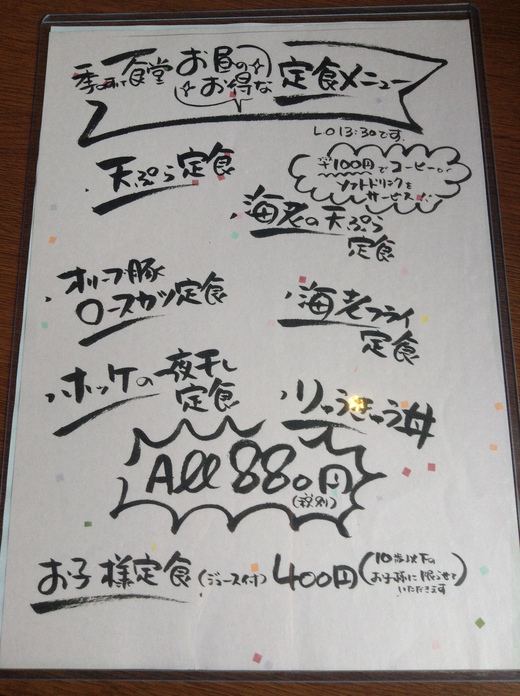 食堂
お昼の
お得な
定食メニュー
LO 13:30です。
天ぷら定食
+100円でコーヒーor
ソフトドリンクを
サービス
海老の天ぷら
定食
オリーブ豚
ロースカツ定食
海老フライ
定食
ホッケの夜干し
定食
りゅうきゅう丼
All 880円
(税別)
お子様定食(ジュース付)400円
(10歳以下の
お子様に限らせて
いただきます)